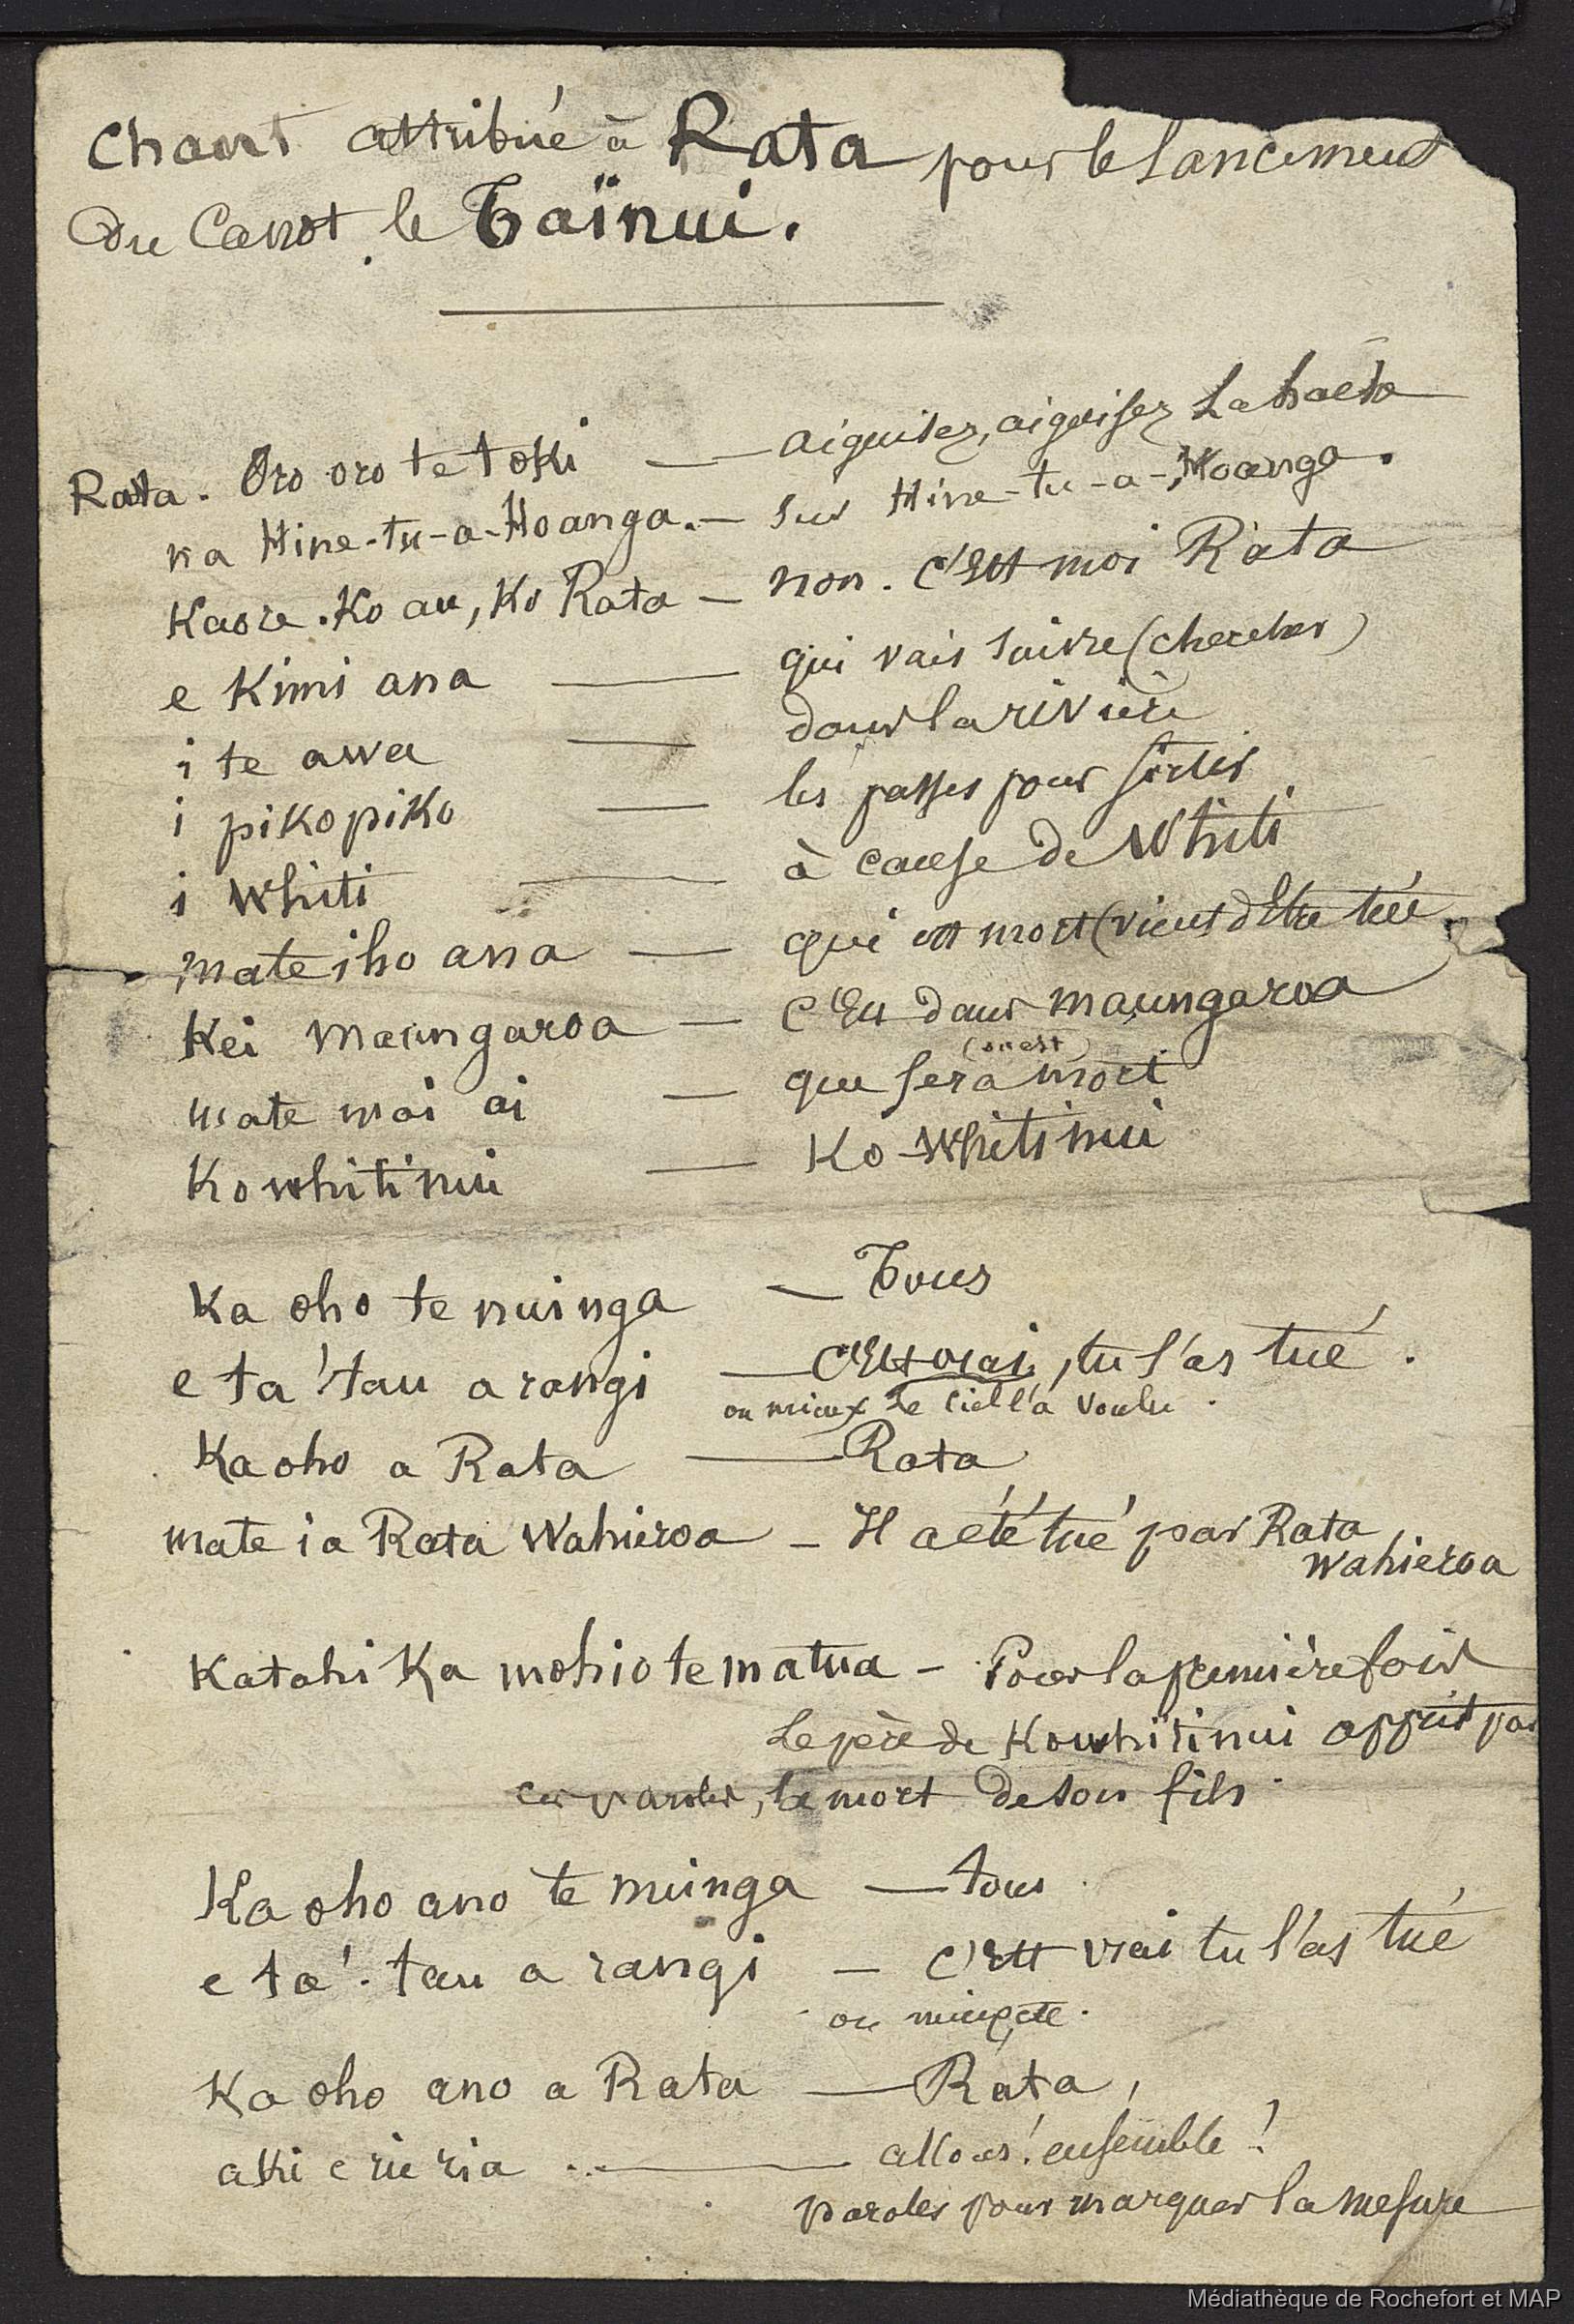 Chant attribué à Rata pour le lancement
du Canot le Taïnui.
Rata. Oro oro te toki — aiguisez, aiguisez la hache
na Hine-tu-a-Hoanga. — sur Hine-tu-a-Hoanga.
Kaore. Ko au, Ko Rata — non. c'est moi Rata
e Kimi ana — qui vais suivre (chercher)
i te awa — dans la rivière
i pikopiko — les passes pour sortir
i Whiti — à cause de Whiti
mate iho ana — qui est mort (vient d'être tué
Kei maungaroa — c'est dans maungaroa
(on est)
mate mai ai — que sera mort
Kowhitinui — Ko-Whitinui
Ka oho te nuinga — Tous
e ta' tau a rangi — C'est vrai, tu l'as tué.
ou mieux Le Ciel l'a voulu.
Ka oho a Rata — Rata
mate i a Rata Wahieroa — Il a été tué par Rata
Wahieroa
Katahi Ka mohio te matua — Pour la première fois
Le père de Kowhitinui apprit par
ces paroles, la mort de son fils.
Ka oho ano te nuinga — tous
e ta'. tau a rangi — C'est vrai tu l'as tué
ou mieux, etc.
Ka oho ano a Rata — Rata,
aki e rie ria .. — allons! ensemble!
paroles pour marquer la mesure
Médiathèque de Rochefort et MAP